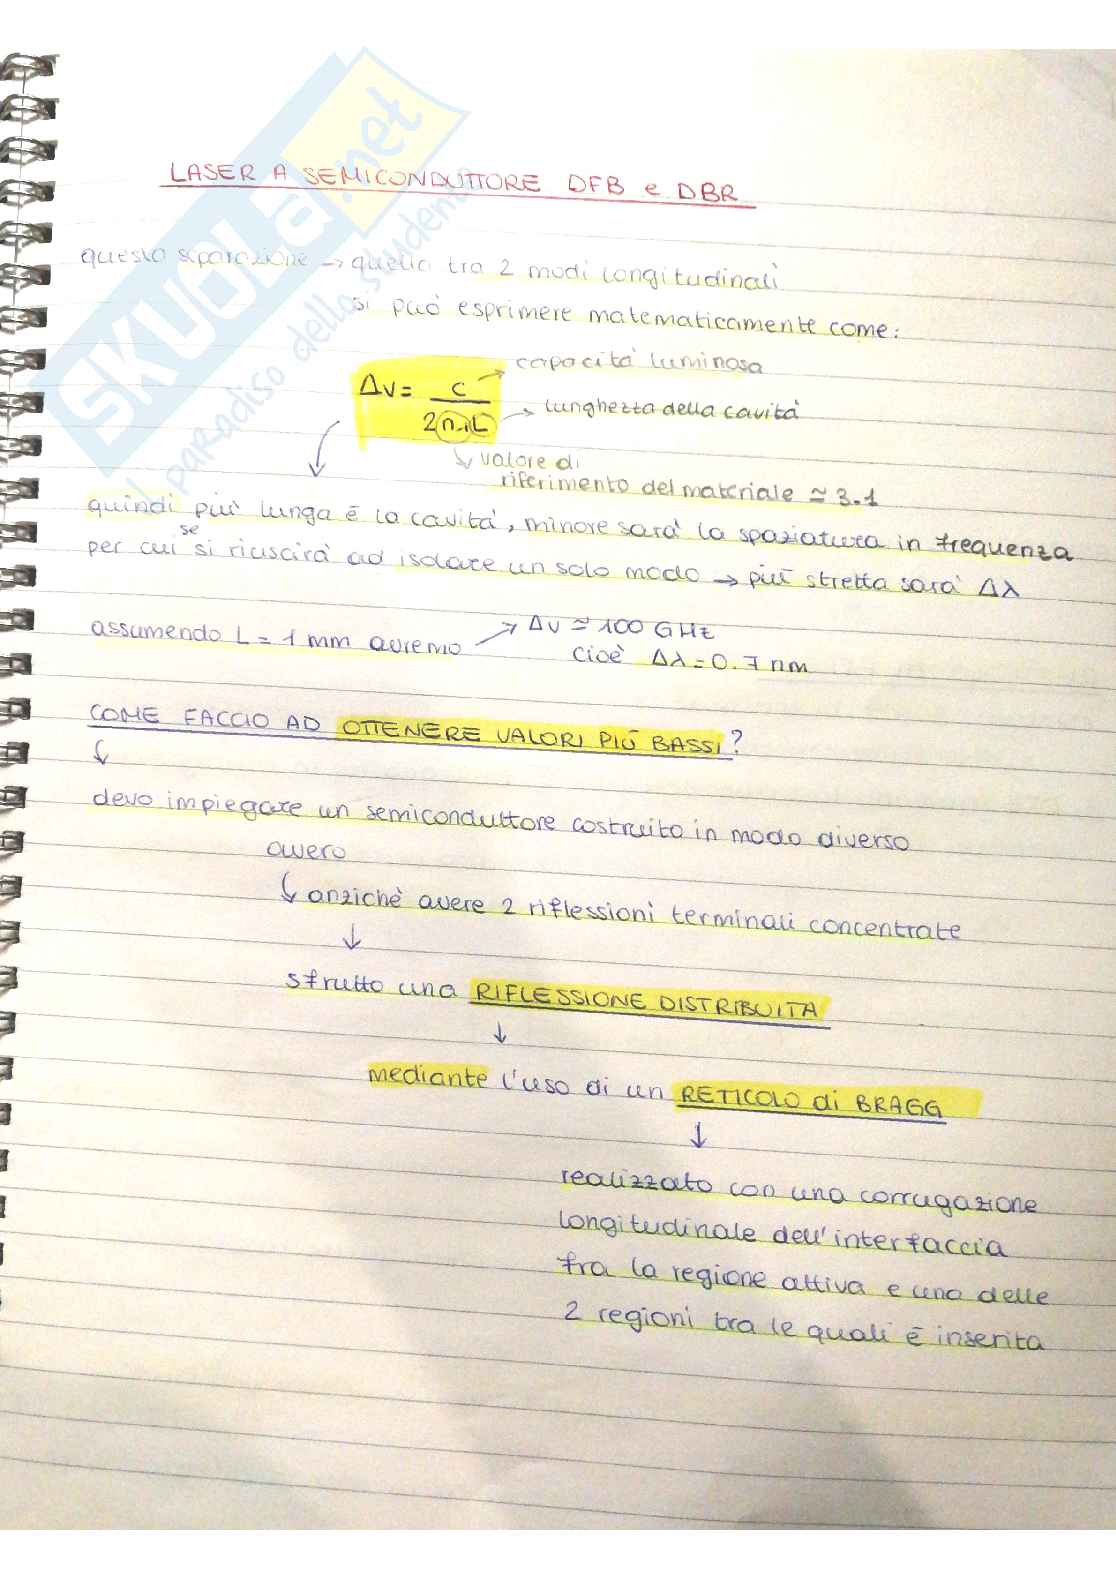 LASER A SEMICONDUTTORE DFB e DBR
questa separazione → quella tra 2 modi longitudinali
si può esprimere matematicamente come:
Δν = c / 2 n₁ L
capacità luminosa
lunghezza della cavità
valore di
riferimento del materiale ≃ 3.1
quindi più lunga è la cavità, minore sarà la spaziatura in frequenza
per cui se si riuscirà ad isolare un solo modo → più stretta sarà Δλ
assumendo L = 1 mm avremo → Δν ≃ 100 GHz
cioè Δλ = 0.7 nm
COME FACCIO AD OTTENERE VALORI PIÙ BASSI?
devo impiegare un semiconduttore costruito in modo diverso
ovvero
anzichè avere 2 riflessioni terminali concentrate
sfrutto una RIFLESSIONE DISTRIBUITA
mediante l'uso di un RETICOLO di BRAGG
realizzato con una corrugazione
longitudinale dell'interfaccia
fra la regione attiva e una delle
2 regioni tra le quali è inserita
SKUOLA.net
il paradiso dello studente